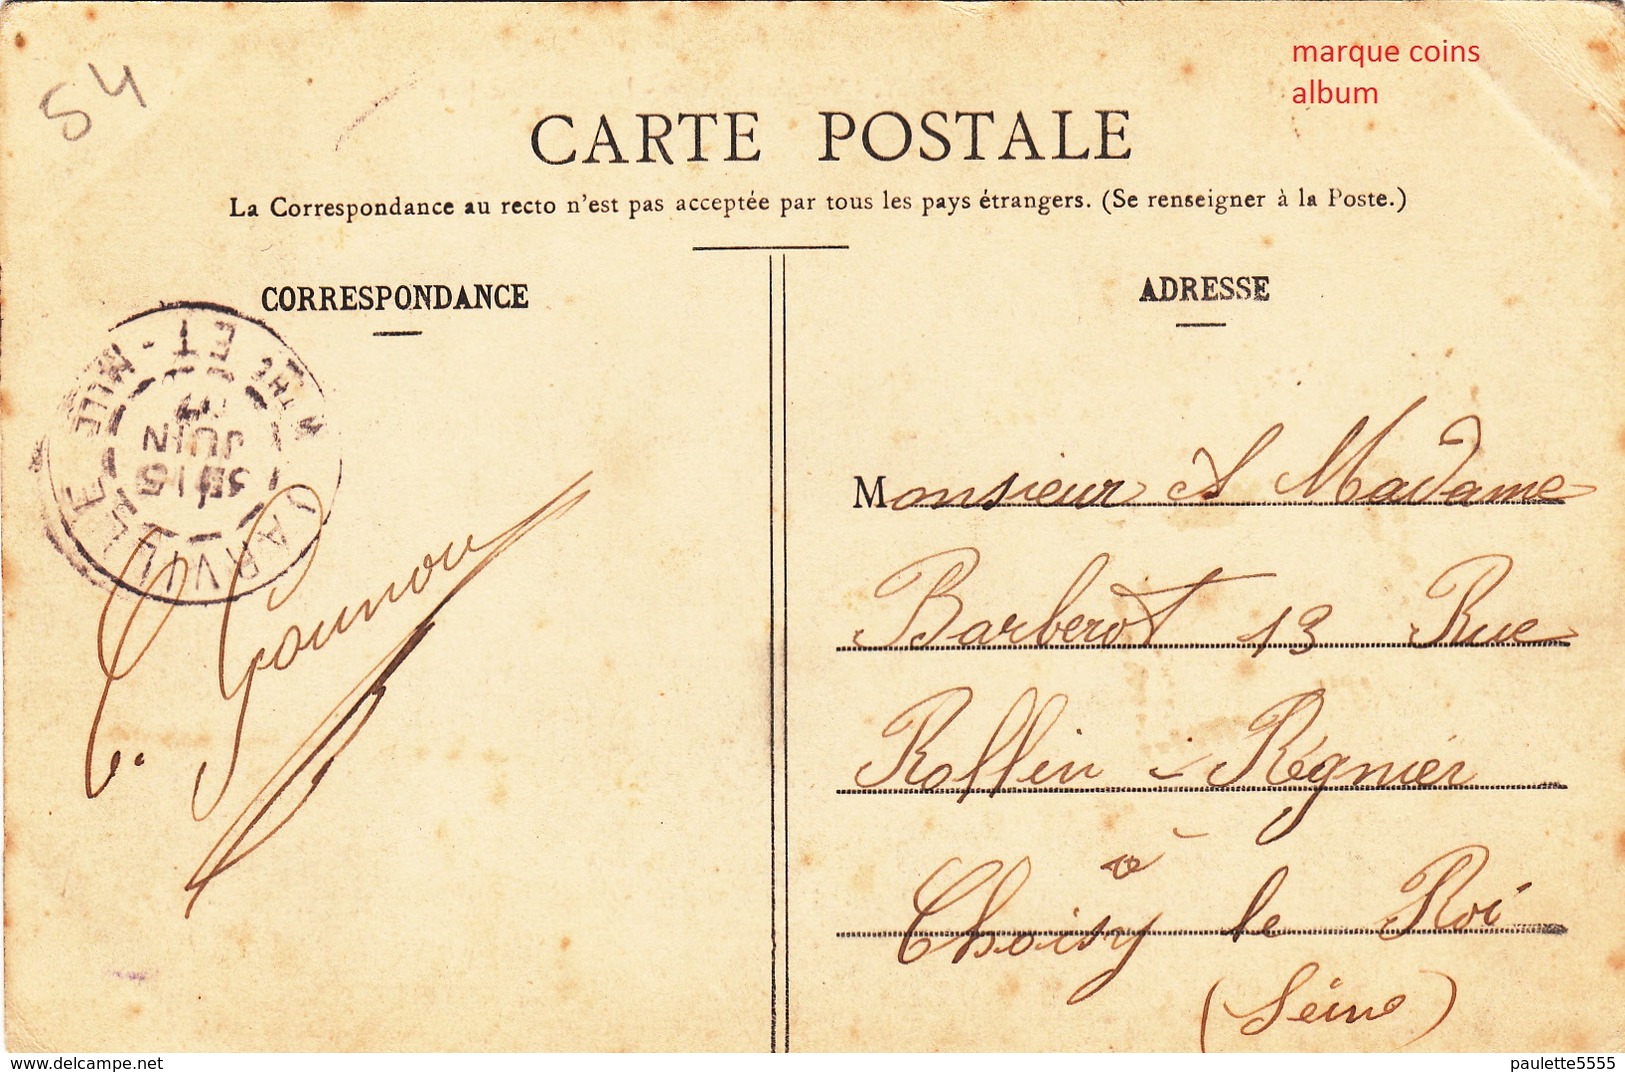 54
marque coins
album
CARTE POSTALE
La Correspondance au recto n'est pas acceptée par tous les pays étrangers. (Se renseigner à la Poste.)
CORRESPONDANCE
ADRESSE
JARVILLE
MTHE ET-MLLE
15
JUIN
Monsieur & Madame
Barberot 13 Rue
Rollin-Régnier
à
Choisy le Roi
(Seine)
delcampe.net
paulette5555